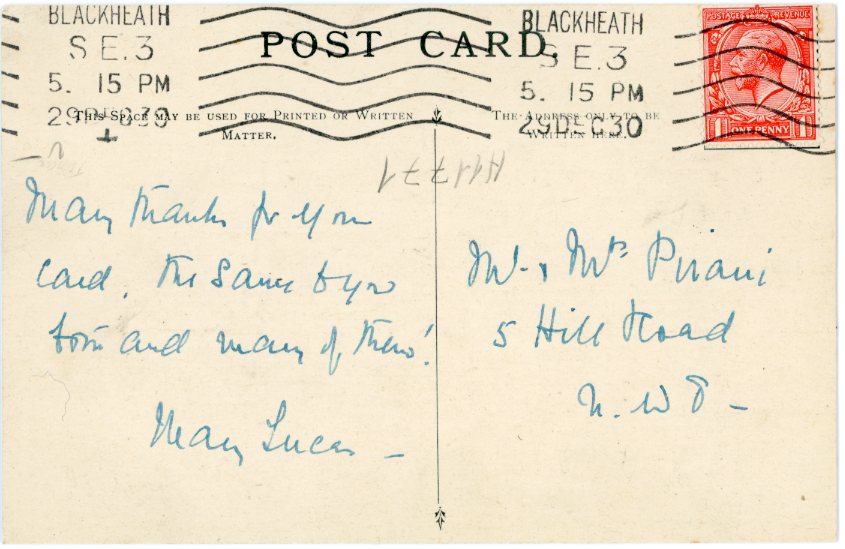 BLACKHEATH
S.E.3
5. 15 PM
29 DEC 30
POST CARD.
BLACKHEATH
S.E.3
5. 15 PM
29 DEC 30
POSTAGE REVENUE
1 ONE PENNY 1
THIS SPACE MAY BE USED FOR PRINTED OR WRITTEN
MATTER.
THE ADDRESS ONLY TO BE
WRITTEN HERE.
H1771
Many thanks for your
card. The same to you
both and many of them!
Mary Lucas –
Mr. & Mrs Pirani
5 Hill Road
N.W 8 –